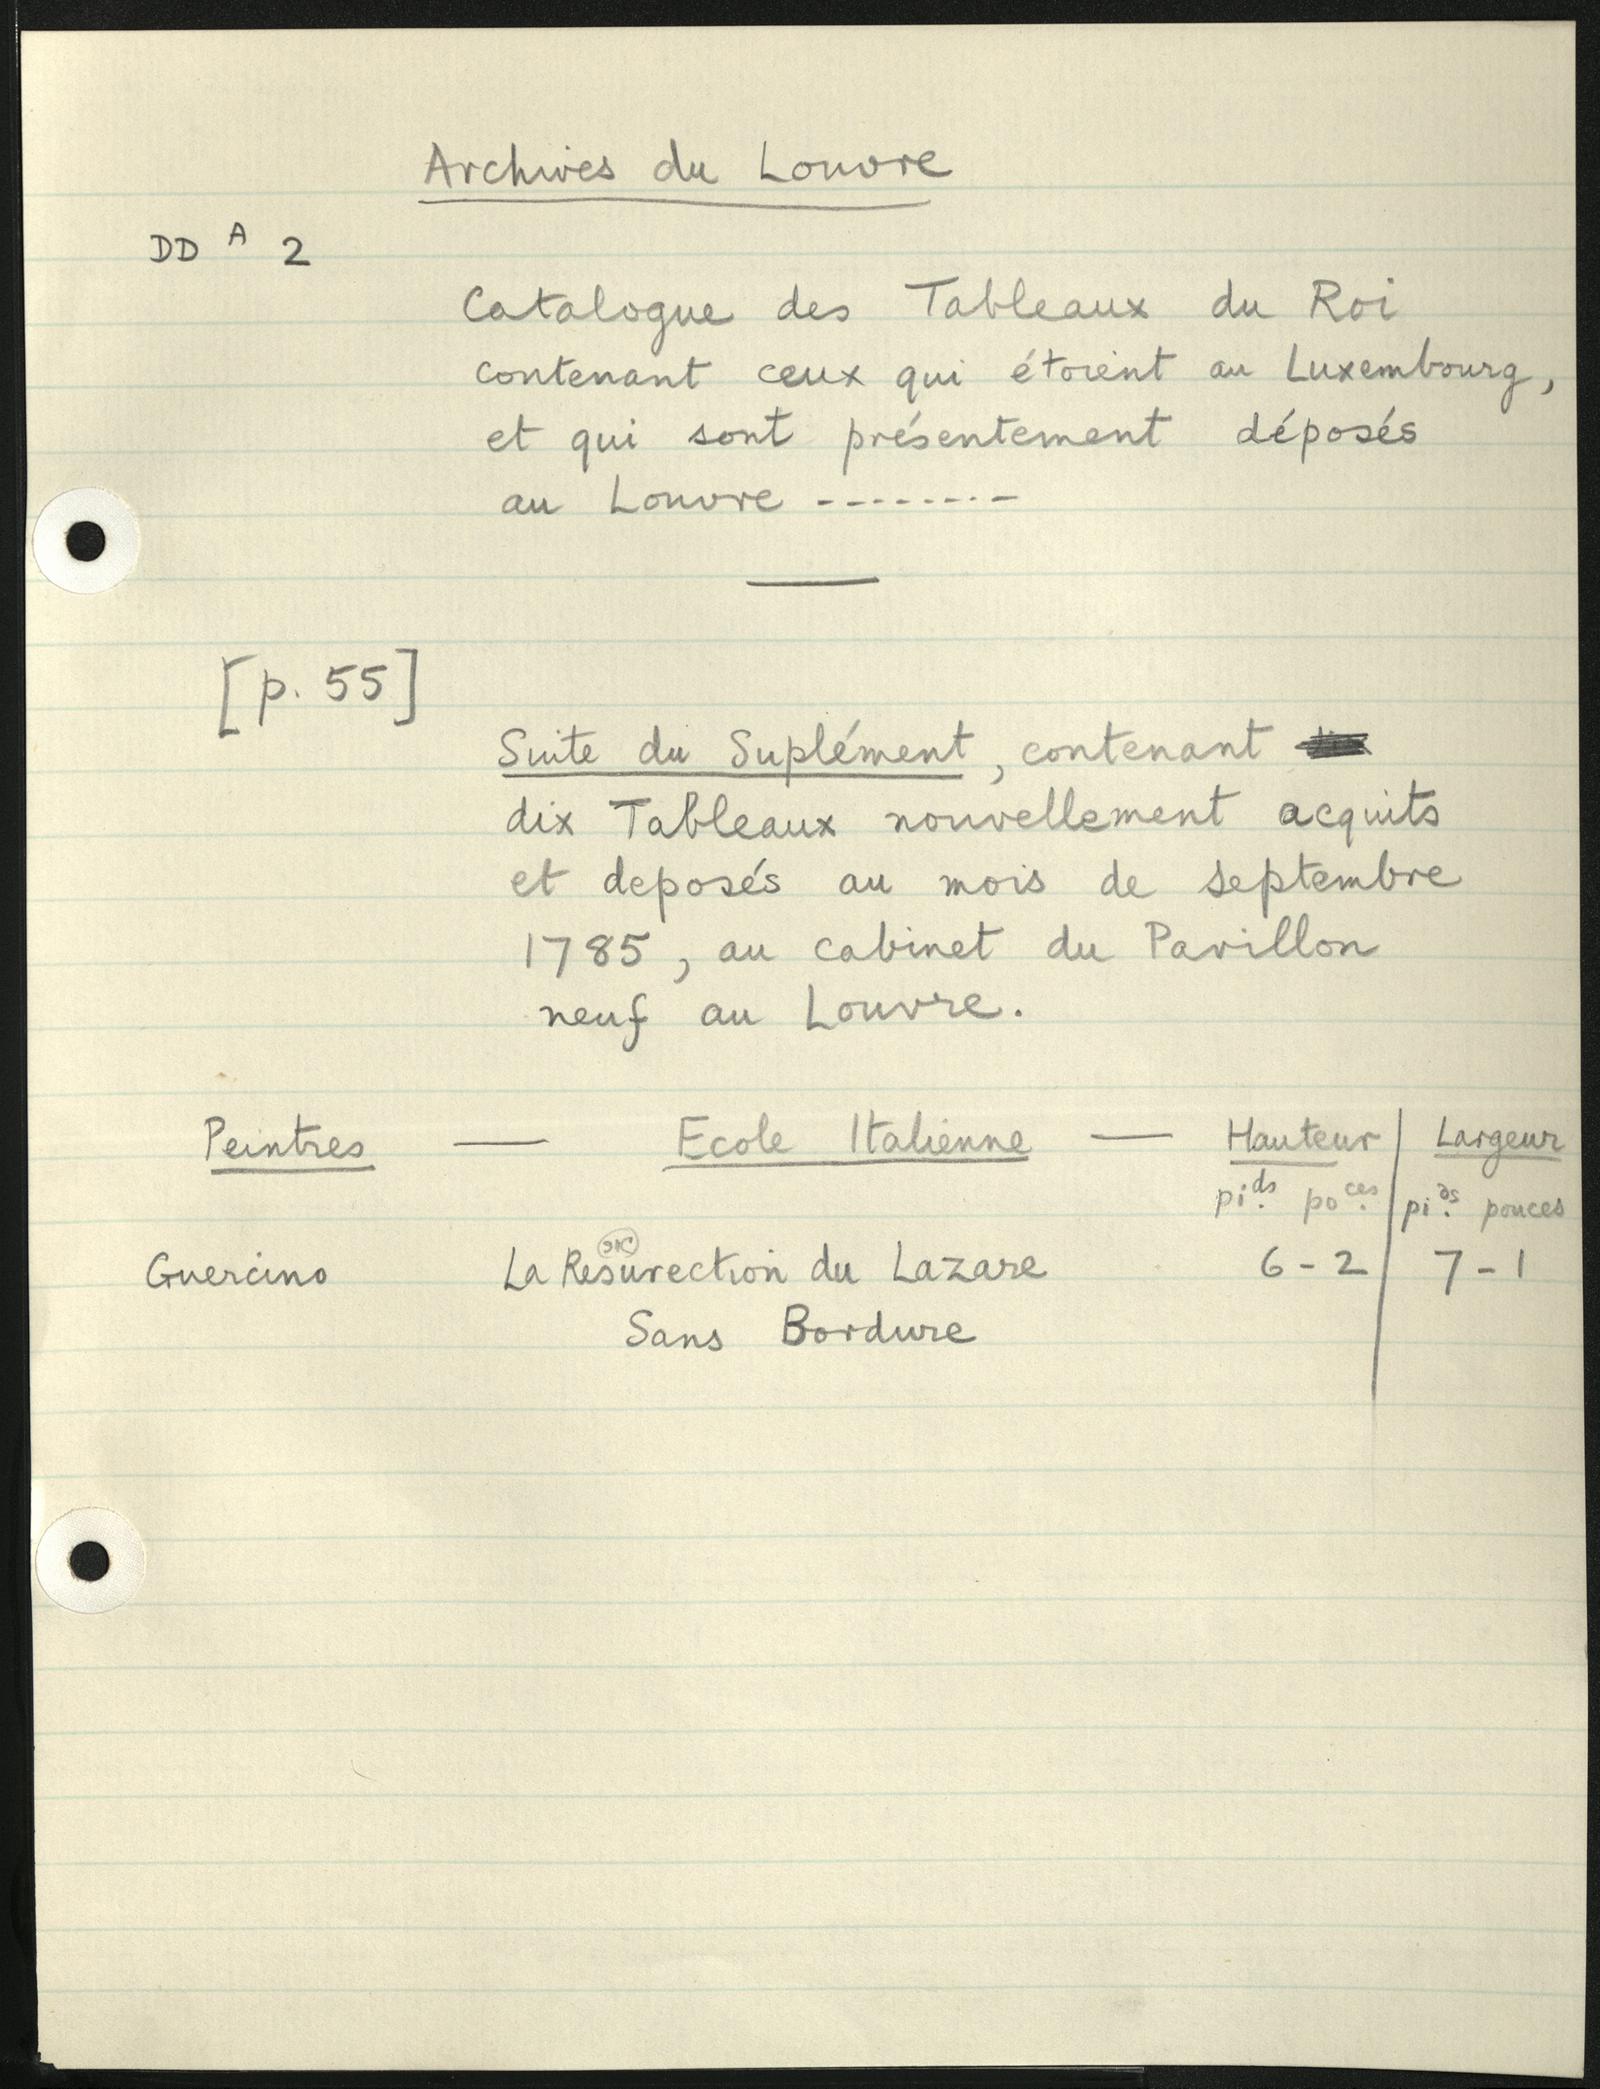 Archives du Louvre
DD A 2
Catalogue des Tableaux du Roi
contenant ceux qui étoient au Luxembourg,
et qui sont présentement déposés
au Louvre --------
[p. 55]
Suite du Suplément, contenant
dix Tableaux nouvellement acquits
et deposés au mois de septembre
1785, au cabinet du Pavillon
neuf au Louvre.
Peintres — Ecole Italienne — Hauteur | Largeur
pi.ds po.ces | pi.ds pouces
sic
Guercino La Resurection du Lazare 6-2 | 7-1
Sans Bordure